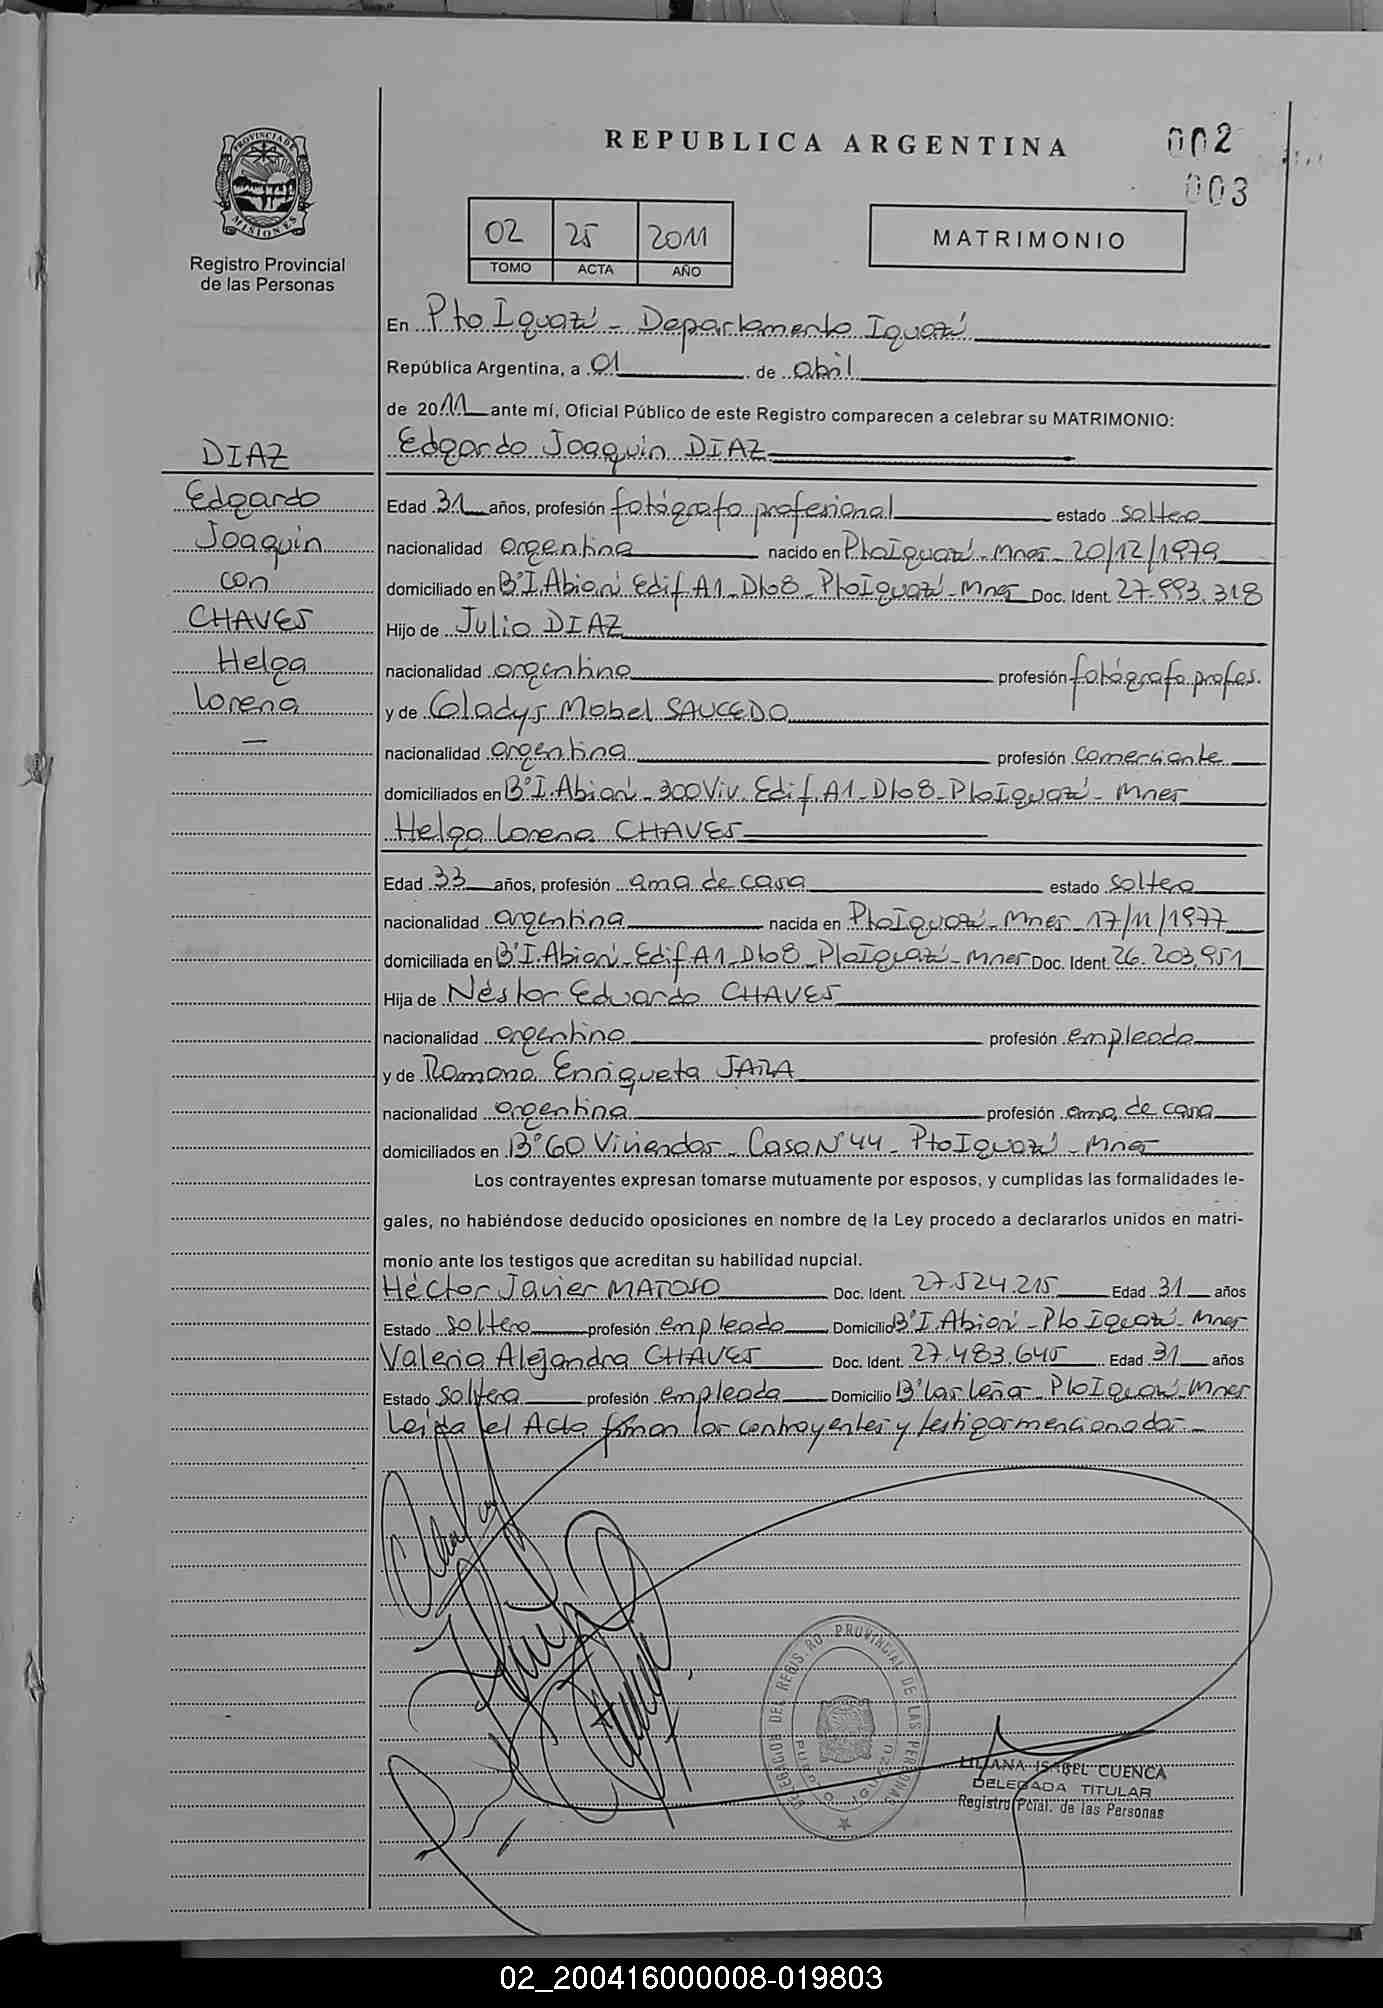 REPUBLICA ARGENTINA
002
003
PROVINCIA DE
MISIONES
Registro Provincial
de las Personas
02 25 2011
TOMO ACTA AÑO
MATRIMONIO
En Pto Iguazú - Departamento Iguazú
República Argentina, a 01 de abril
de 2011 ante mí, Oficial Público de este Registro comparecen a celebrar su MATRIMONIO:
DIAZ
Edgardo
Joaquin
con
CHAVES
Helga
Lorena
Edgardo Joaquin DIAZ
Edad 31 años, profesión fotógrafo profesional estado soltero
nacionalidad argentina nacido en Pto Iguazú - Mnes - 20/12/1979
domiciliado en B° I. Abian Edif A1 - Dto 8 - Pto Iguazú - Mnes Doc. Ident. 27.993.318
Hijo de Julio DIAZ
nacionalidad argentino profesión fotógrafo profes.
y de Gladys Mabel SAUCEDO
nacionalidad argentina profesión comerciante
domiciliados en B° I. Abian - 300 Viv. Edif. A1 - Dto 8 - Pto Iguazú - Mnes
Helga Lorena CHAVES
Edad 33 años, profesión ama de casa estado soltera
nacionalidad argentina nacida en Pto Iguazú - Mnes - 17/11/1977
domiciliada en B° I. Abian - Edif A1 - Dto 8 - Pto Iguazú - Mnes Doc. Ident. 26.203.951
Hija de Néstor Eduardo CHAVES
nacionalidad argentino profesión empleado
y de Ramona Enriqueta JARA
nacionalidad argentina profesión ama de casa
domiciliados en B° 60 Viviendas - Casa N° 44 - Pto Iguazú - Mnes
Los contrayentes expresan tomarse mutuamente por esposos, y cumplidas las formalidades le-
gales, no habiéndose deducido oposiciones en nombre de la Ley procedo a declararlos unidos en matri-
monio ante los testigos que acreditan su habilidad nupcial.
Héctor Javier MATOSO Doc. Ident. 27.524.215 Edad 31 años
Estado soltero profesión empleado Domicilio B° I. Abian - Pto Iguazú - Mnes
Valeria Alejandra CHAVES Doc. Ident. 27.483.645 Edad 31 años
Estado soltera profesión empleada Domicilio B° Las Leña - Pto Iguazú - Mnes
Leida el Acta firman los contrayentes y testigos mencionados -
DELEGACION DEL REGISTRO PROVINCIAL DE LAS PERSONAS
PUERTO IGUAZU
LILIANA ISABEL CUENCA
DELEGADA TITULAR
Registro Pcial. de las Personas
02_200416000008-019803